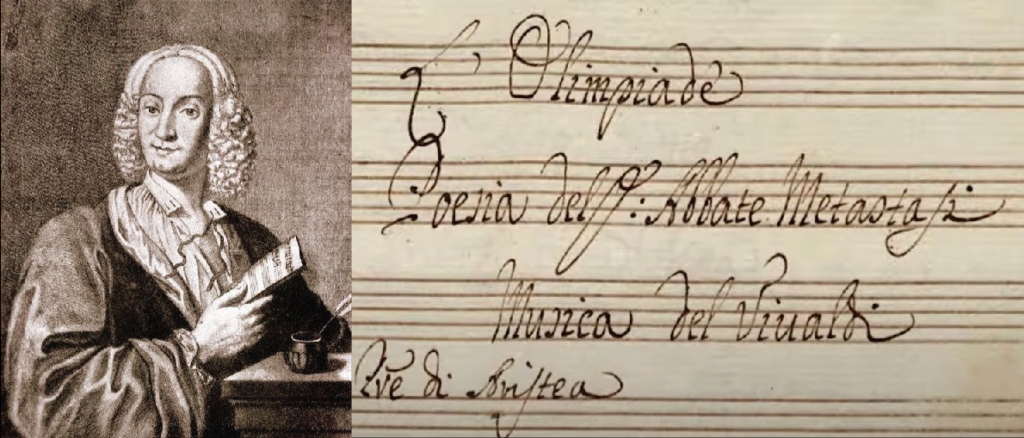 L'Olimpiade
Poesia del Sr: Abbate Metastasi
Musica del Viualdi
di Aristea